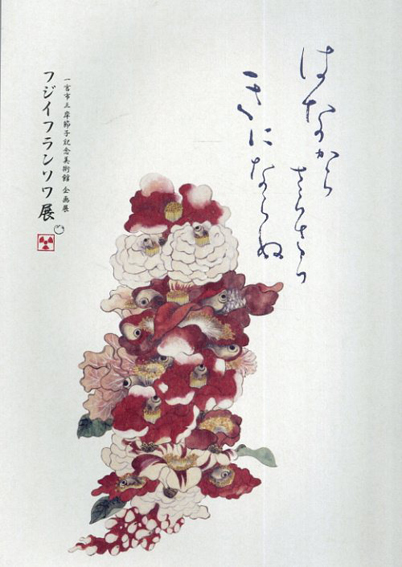 はなから
さらさら
きにならぬ
一宮市三岸節子記念美術館 企画展
フジイフランソワ展